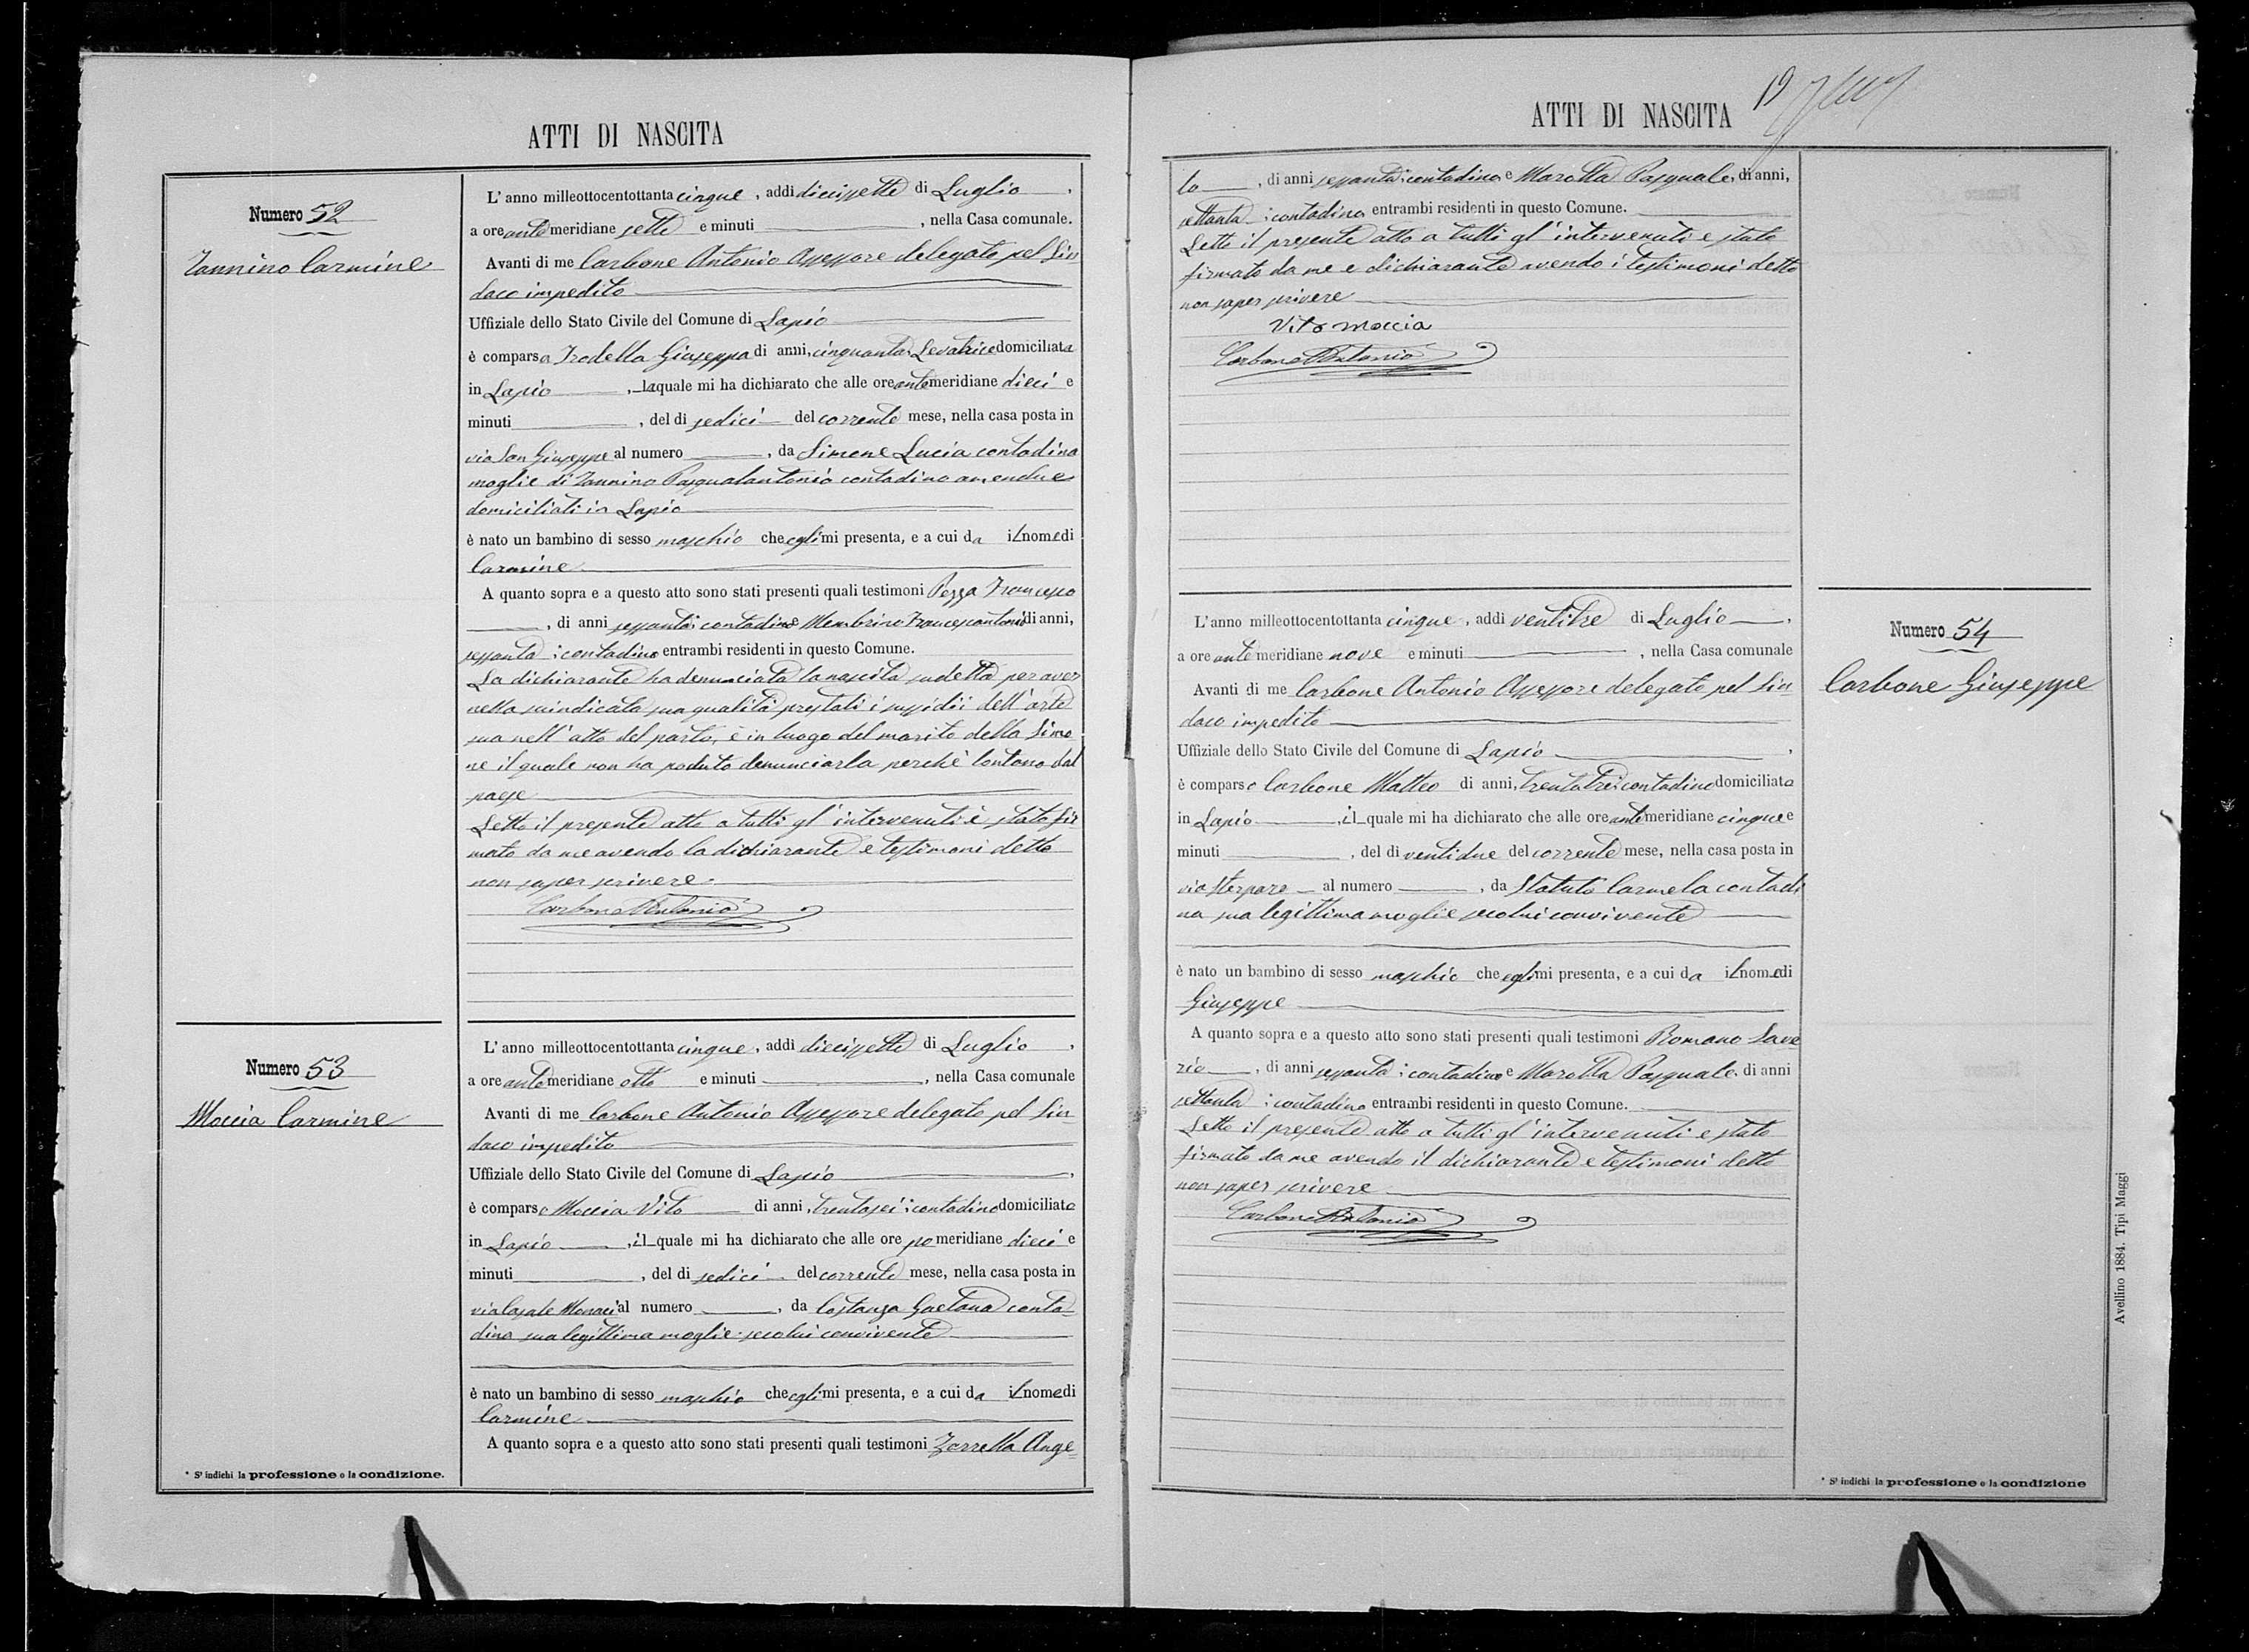 ATTI DI NASCITA
Numero 52
Iannino Carmine
L'anno milleottocentottanta cinque, addi diecissette di Luglio,
a ore antemeridiane sette e minuti, nella Casa comunale.
Avanti di me Carbone Antonio Assessore delegato pel Sin
daco impedito
Uffiziale dello Stato Civile del Comune di Lapio
è comparsa Trodella Giuseppa di anni, cinquanta, Levatrice domiciliata
in Lapio, la quale mi ha dichiarato che alle ore antemeridiane dieci e
minuti, del di sedici del corrente mese, nella casa posta in
via San Giuseppe al numero, da Simone Lucia contadina
moglie di Iannino Pasqualantonio contadino amendue
domiciliati in Lapio
è nato un bambino di sesso maschio che egli mi presenta, e a cui da il nome di
Carmine
A quanto sopra e a questo atto sono stati presenti quali testimoni Pezza Francesco
, di anni sessanta; contadino e Membrino Francescantonio di anni,
sessanta; contadino entrambi residenti in questo Comune.
La dichiarante ha denunciata la nascita sudetta per aver
nella suindicata sua qualità prestati i sussidii dell'arte
sua nell'atto del parto, e in luogo del marito della Simo
ne il quale non ha poduto denunciarla perchè lontano dal
paese
Letto il presente atto a tutti gl'intervenuti è stato fir
mato da me avendo la dichiarante e testimoni detto
non saper scrivere.
Carbone Antonio
Numero 53
Moccia Carmine
L'anno milleottocentottanta cinque, addi diecissette di Luglio,
a ore antemeridiane otto e minuti, nella Casa comunale
Avanti di me Carbone Antonio Assessore delegato pel Sin-
daco impedito
Uffiziale dello Stato Civile del Comune di Lapio,
è comparso Moccia Vito di anni, trentasei; contadino domiciliato
in Lapio, il quale mi ha dichiarato che alle ore pomeridiane dieci e
minuti, del di sedici del corrente mese, nella casa posta in
via Casale Monaci al numero, da Costanza Gaetana conta
dina sua legittima moglie secolui convivente
è nato un bambino di sesso maschio che egli mi presenta, e a cui da il nome di
Carmine
A quanto sopra e a questo atto sono stati presenti quali testimoni Zarrella Ange
* S'indichi la professione o la condizione.
ATTI DI NASCITA
19
lo, di anni sessanta; contadino e Marotta Pasquale, di anni,
settanta; contadino entrambi residenti in questo Comune.
Letto il presente atto a tutti gl'intervenuti e stato
firmato da me e dichiarante avendo i testimoni detto
non saper scrivere
Vito Moccia
Carbone Antonio
L'anno milleottocentottanta cinque, addi ventitre di Luglio,
a ore antemeridiane nove e minuti, nella Casa comunale
Avanti di me Carbone Antonio Assessore delegato pel Sin-
daco impedito
Uffiziale dello Stato Civile del Comune di Lapio,
è comparso Carbone Matteo di anni, trentatre; contadino domiciliato
in Lapio, il quale mi ha dichiarato che alle ore antemeridiane cinque e
minuti, del di ventidue del corrente mese, nella casa posta in
via Sterparo al numero, da Statuto Carmela contadi
na sua legittima moglie secolui convivente
è nato un bambino di sesso maschio che egli mi presenta, e a cui da il nome di
Giuseppe
A quanto sopra e a questo atto sono stati presenti quali testimoni Romano Save
rio, di anni sessanta; contadino e Marotta Pasquale, di anni
settanta; contadino entrambi residenti in questo Comune.
Letto il presente atto a tutti gl'intervenuti e stato
firmato da me avendo il dichiarante e testimoni detto
non saper scrivere
Carbone Antonio
Numero 54
Carbone Giuseppe
* S'indichi la professione o la condizione
Avellino 1884. Tipi Maggi